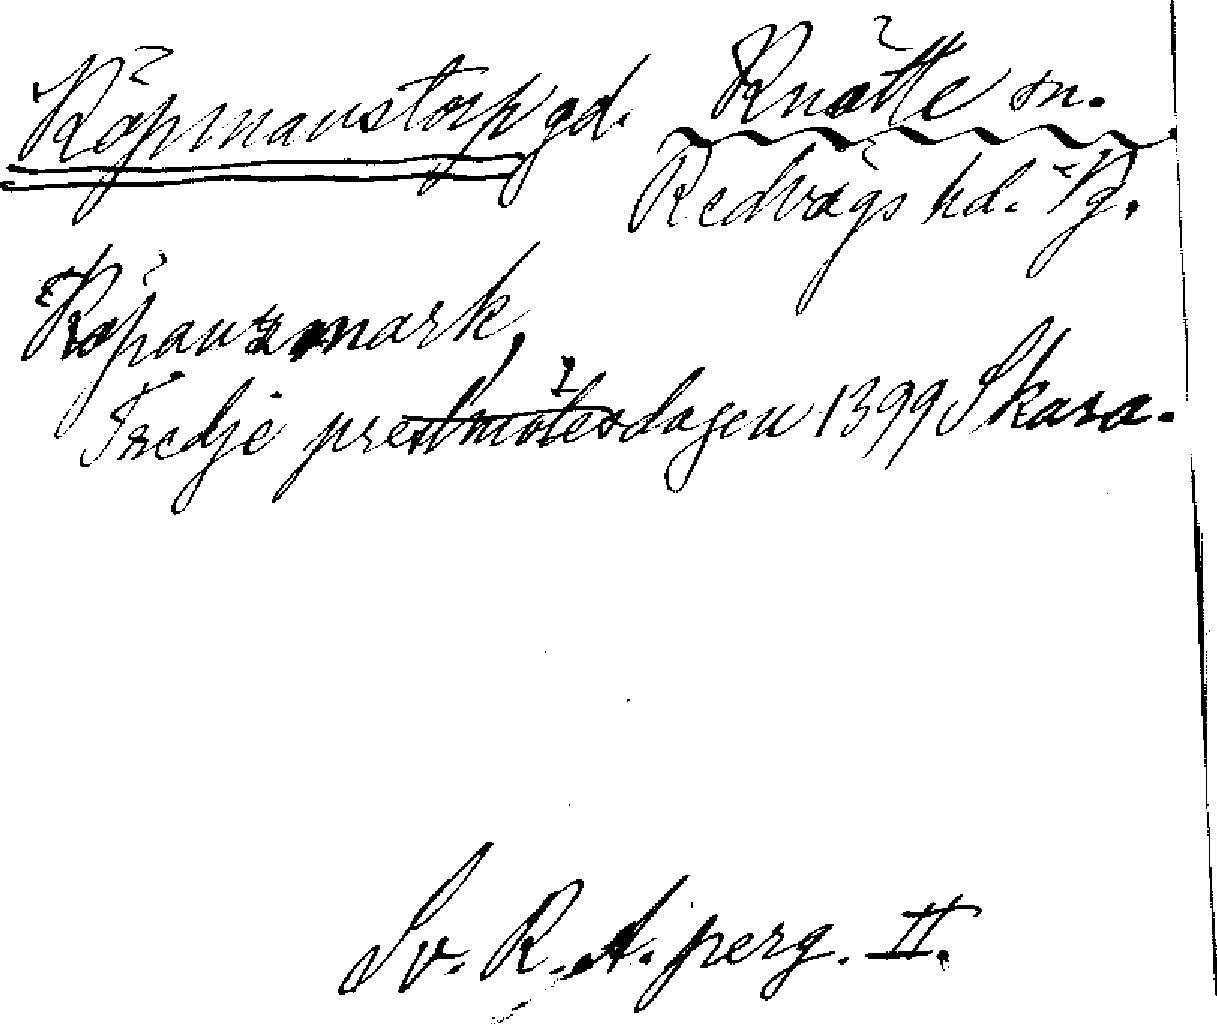 Köpmanstorp gd. Knätte sn.
Redvägs hd. Vg.
Köpanzmark,
Tredje prestmötesdagen 1399 Skara.
Sv. R. A. perg. II.